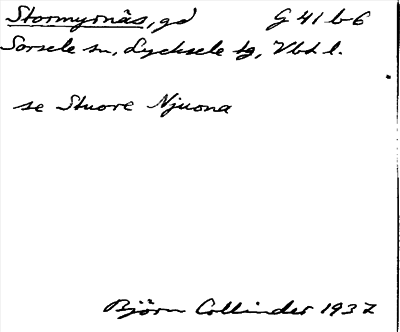 Stormyrnäs, gd G 41 b 6
Sorsele sn, Lycksele tg, Vbtl.
se Stuore Njuona
Björn Collinder 1937